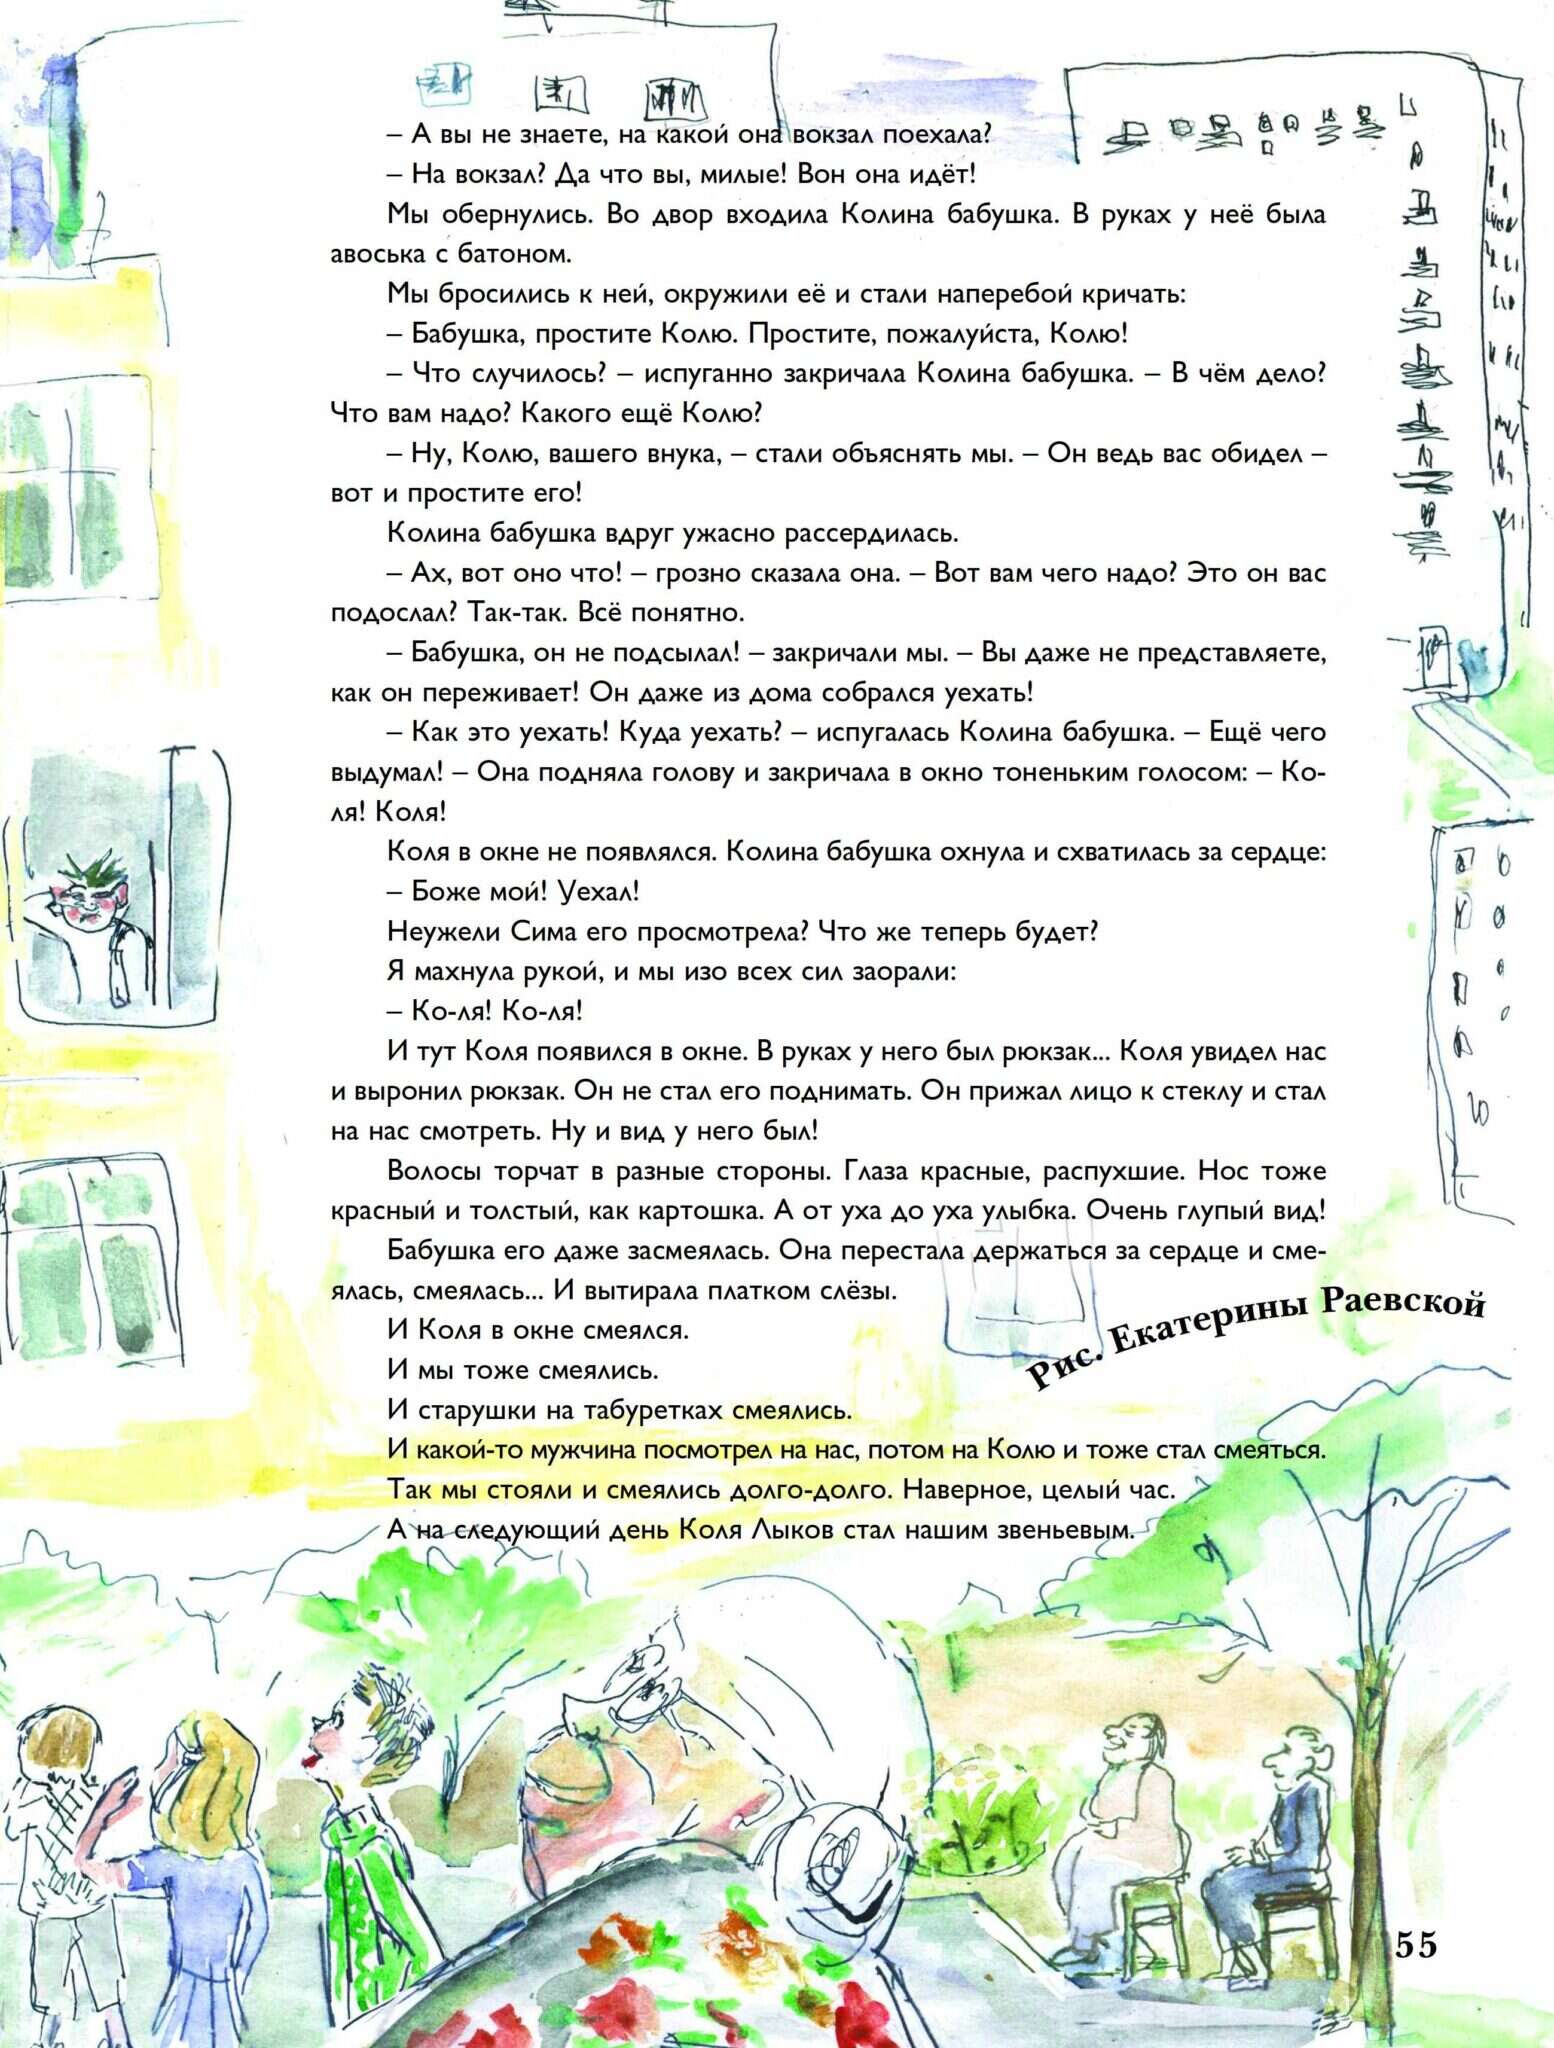 – А вы не знаете, на какой она вокзал поехала?
– На вокзал? Да что вы, милые! Вон она идёт!
Мы обернулись. Во двор входила Колина бабушка. В руках у неё была
авоська с батоном.
Мы бросились к ней, окружили её и стали наперебой кричать:
– Бабушка, простите Колю. Простите, пожалуйста, Колю!
– Что случилось? – испуганно закричала Колина бабушка. – В чём дело?
Что вам надо? Какого ещё Колю?
– Ну, Колю, вашего внука, – стали объяснять мы. – Он ведь вас обидел –
вот и простите его!
Колина бабушка вдруг ужасно рассердилась.
– Ах, вот оно что! – грозно сказала она. – Вот вам чего надо? Это он вас
подослал? Так-так. Всё понятно.
– Бабушка, он не подсылал! – закричали мы. – Вы даже не представляете,
как он переживает! Он даже из дома собрался уехать!
– Как это уехать! Куда уехать? – испугалась Колина бабушка. – Ещё чего
выдумал! – Она подняла голову и закричала в окно тоненьким голосом: – Ко-
ля! Коля!
Коля в окне не появлялся. Колина бабушка охнула и схватилась за сердце:
– Боже мой! Уехал!
Неужели Сима его просмотрела? Что же теперь будет?
Я махнула рукой, и мы изо всех сил заорали:
– Ко-ля! Ко-ля!
И тут Коля появился в окне. В руках у него был рюкзак... Коля увидел нас
и выронил рюкзак. Он не стал его поднимать. Он прижал лицо к стеклу и стал
на нас смотреть. Ну и вид у него был!
Волосы торчат в разные стороны. Глаза красные, распухшие. Нос тоже
красный и толстый, как картошка. А от уха до уха улыбка. Очень глупый вид!
Бабушка его даже засмеялась. Она перестала держаться за сердце и сме-
ялась, смеялась... И вытирала платком слёзы.
И Коля в окне смеялся.
И мы тоже смеялись.
И старушки на табуретках смеялись.
И какой-то мужчина посмотрел на нас, потом на Колю и тоже стал смеяться.
Так мы стояли и смеялись долго-долго. Наверное, целый час.
А на следующий день Коля Лыков стал нашим звеньевым.
Рис. Екатерины Раевской
55